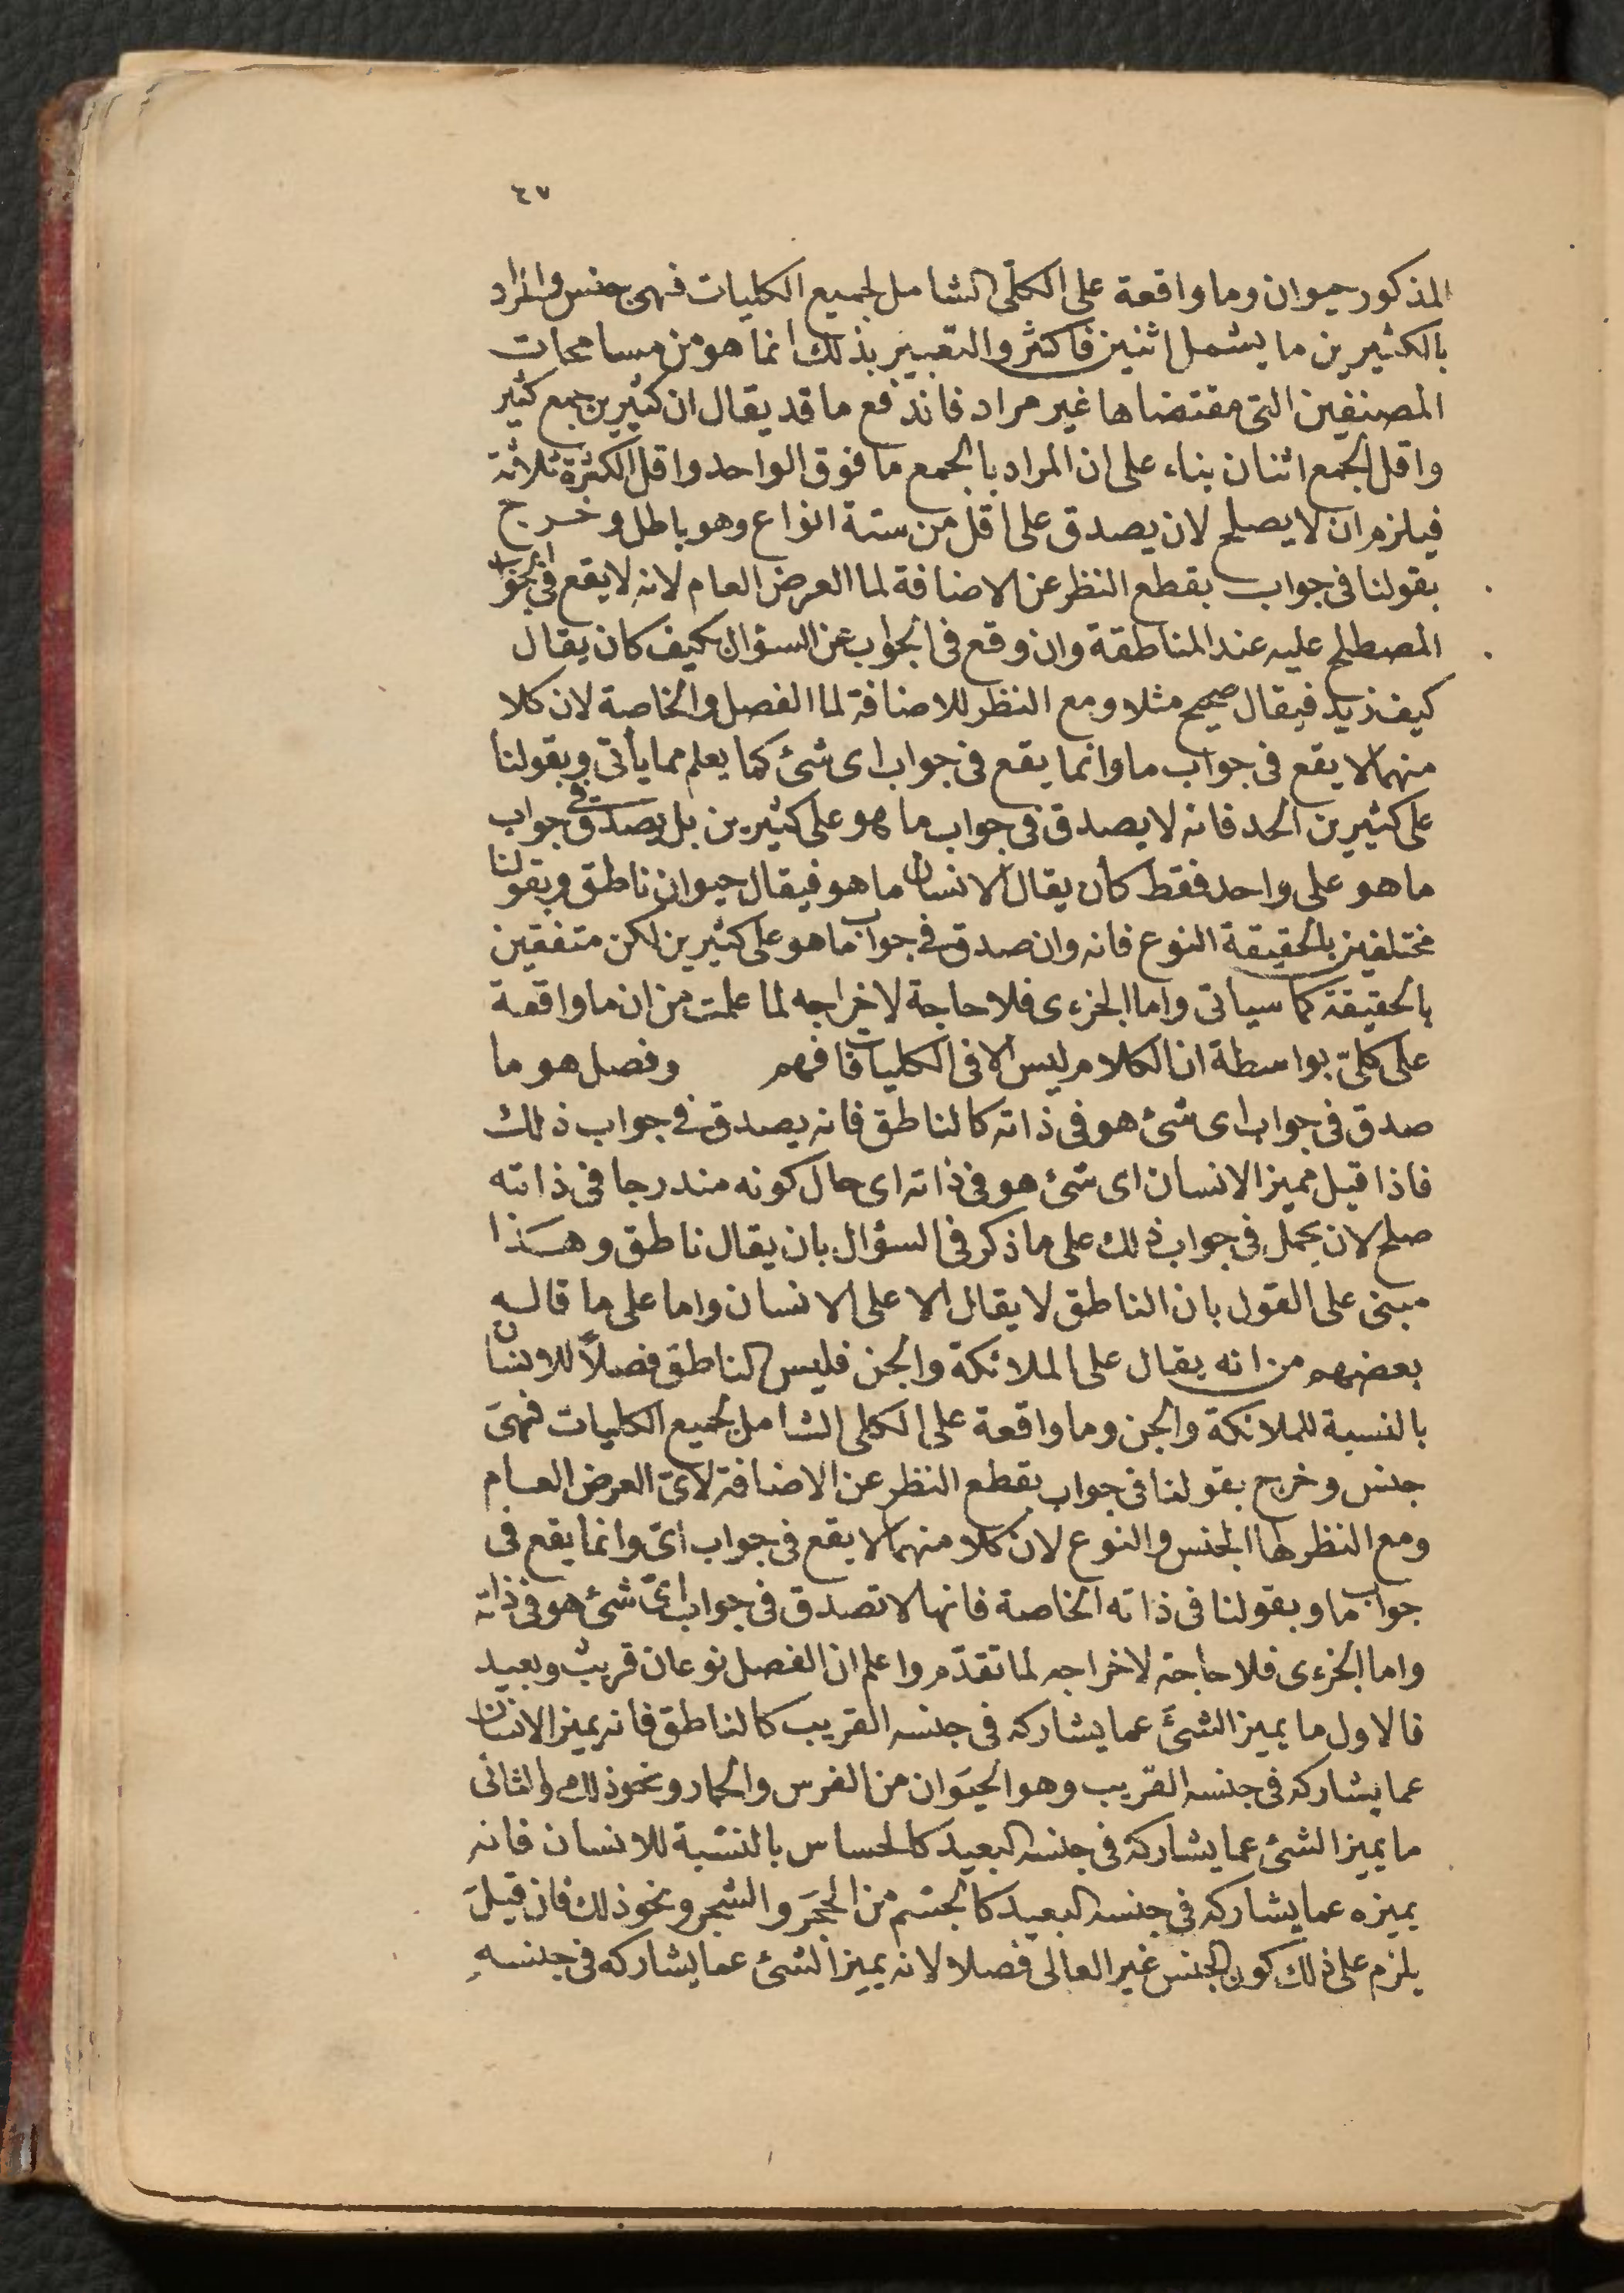 ٤٧
المذكور حيوان وما واقعة على الكلّى الشامل لجميع الكليات فهى جنس والمراد
بالكثيرين ما يشمل اثنين فاكثر والتعبير بذلك انما هو من مسامحات
المصنفين التى مقتضاها غير مراد فاندفع ما قد يقال ان كثيرين جمع كثير
واقل الجمع اثنان بناء على ان المراد بالجمع ما فوق الواحد واقل الكثرة ثلاثة
فيلزم ان لا يصلح لان يصدق على اقل من ستة انواع وهو باطل وخرج
بقولنا فى جواب بقطع النظر عن الاضافة لما العرض العام لانه لا يقع فى الجواب
المصطلح عليه عند المناطقة وان وقع فى الجواب عن السؤال بكيف كان يقال
كيف زيد فيقال صحيح مثلا ومع النظر للاضافة لما الفصل والخاصة لان كلا
منهما لا يقع فى جواب ما وانما يقع فى جواب اى شئ كما يعلم مما يأتى وبقولنا
على كثيرين الحد فانه لا يصدق فى جواب ما هو على كثيرين بل يصدق فى جواب
ما هو على واحد فقط كأن يقال الانسان ما هو فيقال حيوان ناطق وبقولنا
مختلفين بالحقيقة النوع فانه وان صدق فى جواب ما هو على كثيرين لكن متفقين
بالحقيقة كما سيأتى واما الجزءى فلا حاجة لاخراجه لما علمت من ان ما واقعة
على كلّى بواسطة ان الكلام ليس الا فى الكليات فافهم وفصل هو ما
صدق فى جواب اى شئ هو فى ذاته كالناطق فانه يصدق فى جواب ذلك
فاذا قيل مميز الانسان اى شئ هو فى ذاته اى حال كونه مندرجا فى ذاته
صلح لان يحمل فى جواب ذلك على ما ذكر فى السؤال بان يقال ناطق وهذا
مبنى على القول بان الناطق لا يقال الا على الانسان واما على ما قاله
بعضهم من انه يقال على الملائكة والجن فليس الناطق فصلاً للانسان
بالنسبة للملائكة والجن وما واقعة على الكلى الشامل لجميع الكليات فهىَ
جنس وخرج بقولنا فى جواب بقطع النظر عن الاضافة لاىّ العرض العام
ومع النظر لها الجنس والنوع لان كلا منهما لا يقع فى جواب اىّ وانما يقع فى
جواب ما وبقولنا فى ذاته الخاصة فانها لا تصدق فى جواب اىّ شئ هو فى ذاته
واما الجزءى فلا حاجة لاخراجه لما تقدّم واعلم ان الفصل نوعان قريب وبعيد
فالاول ما يميز الشئَ عما يشاركه فى جنسه القريب كالناطق فانه يميز الانسان
عما يشاركه فى جنسه القريب وهو الحيَوان من الفرس والحمار ونحو ذلك والثانى
ما يميز الشئ عما يشاركه فى جنسه البعيد كالحساس بالنسبة للانسان فانه
يميزه عما يشاركه فى جنسه البعيد كالجسم من الحجَر والشجر ونحو ذلك فان قيلَ
يلزم على ذلك كون الجنس غير العالى فصلا لانه يميز الشئ عما يشاركه فى جنسهِ